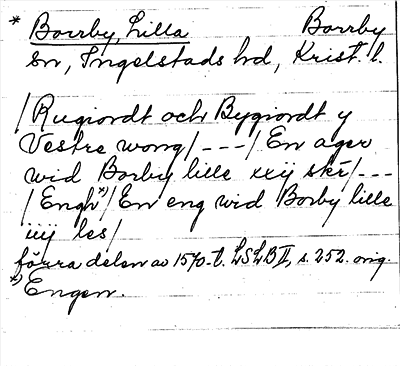 * Borrby, Lilla Borrby
sn, Ingelstads hd, Krist. l.
/ Rugiordt och Bygiordt y
Vestre wong / - - - / En ager
wid Borby lille xxij skr / - - -
/ Engh *) / En eng wid Borby lille
iiij les /
förra delen av 1570-t. LSLB II, s. 252. orig.
*) Engen.